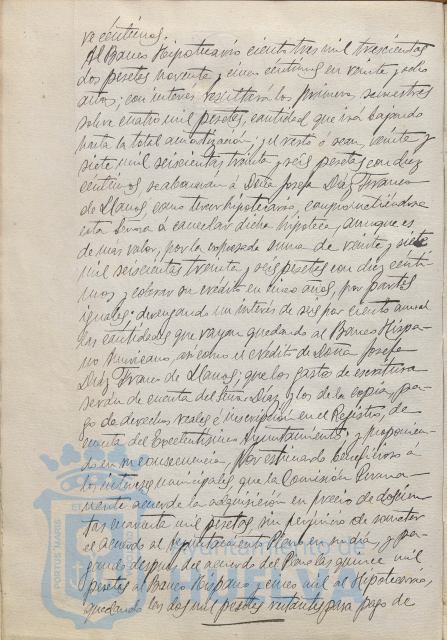 ve céntimos.
Al Banco Hipotecario ciento tres mil trescientas
dos pesetas noventa y cinco céntimos en veinte y ocho
años; con interés los primeros semestres
sobre cuatro mil pesetas, cantidad que irá bajando
hasta la total amortización; y el resto ó sean, veinte y
siete mil seiscientas treinta y seis pesetas con diez
céntimos se abonaran á Doña Josefa Díaz Franco
de Llanos, como tercer hipotecario, comprometiéndose
esta Señora á cancelar dicha hipoteca, aunque es
de mas valor, por la expresada suma de veinte y siete
mil seiscientas treinta y seis pesetas con diez cénti
mos y cobrar su crédito en cinco años, por partes
iguales; devengando un interés de seis por ciento anual
las cantidades que vayan quedando al Banco Hispa
no Americano, así como el crédito de Doña Josefa
Díaz Franco de Llanos; que los gastos de escritura
serán de cuenta del Señor Díaz y los de la copia, pa
go de derechos reales é inscripción en el Registro, de
cuenta del Excelentísimo Ayuntamiento; y proponien
do en su consecuencia, por estimarlo beneficioso a
los intereses municipales, que la Comisión Perma
nente acuerde la adquisición en precio de doscien
tas cuarenta mil pesetas, sin perjuicio de someter
el acuerdo al Ayuntamiento Pleno en su día y pa
gando después del acuerdo del Pleno las quince mil
pesetas al Banco Hispano y cinco mil al Hipotecario,
quedando las dos mil pesetas restantes para pago de
PORTUS MARIS ET
Ayuntamiento de
HUELVA